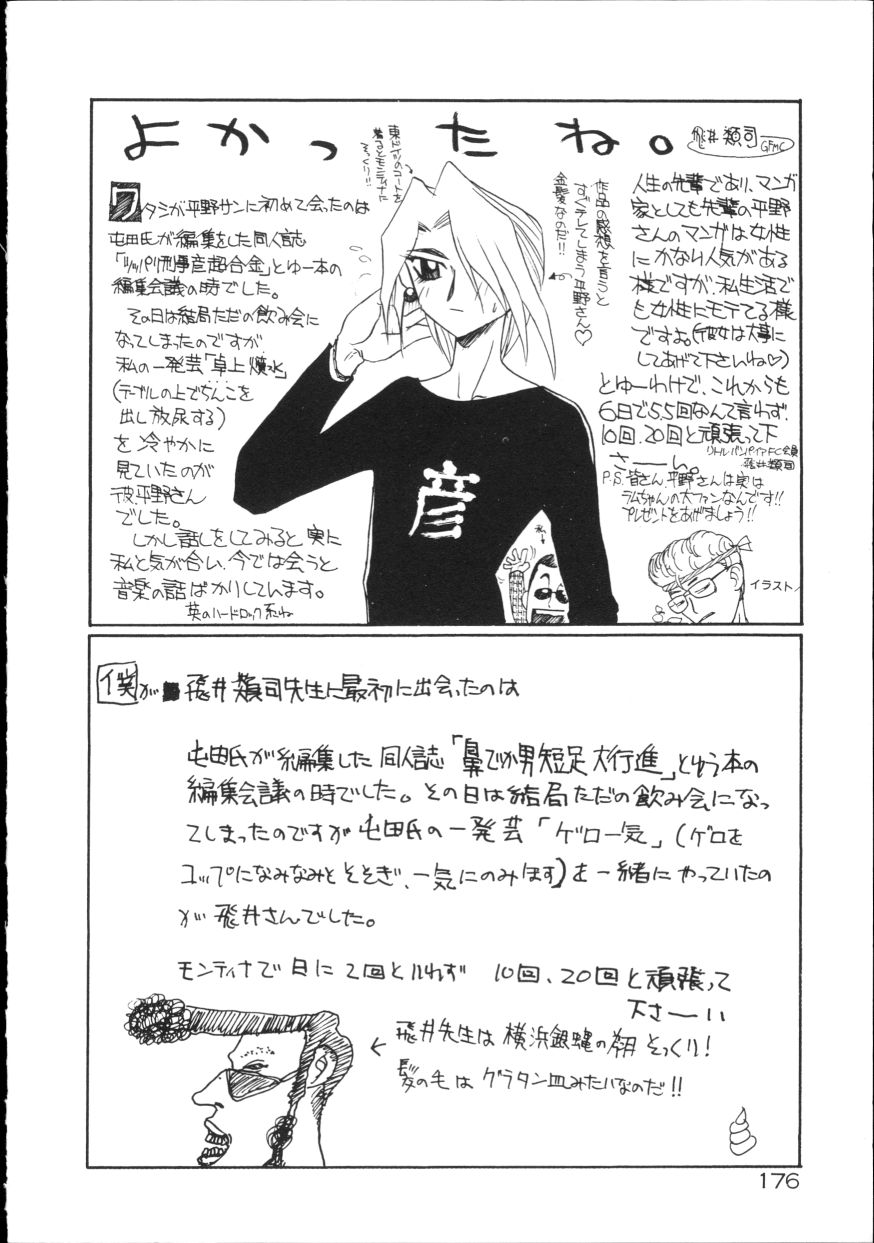 よかったね。
飛井類司
GFMC
東ドイツのコートを
着るとモンティナた
そっくり!!
ワタシが平野サンに初めて会ったのは
屯田氏が編集をした同人誌
「ツッパリ刑事彦超合金」とゆー本の
編集会議の時でした。
その日は結局ただの飲み会に
なってしまったのですが
私の一発芸「卓上噴水」
(テーブルの上でちんこを
出し放尿する)
を冷やかに
見ていたのが
彼、平野さん
でした。
しかし話しをしてみると実に
私と気が合い、今では会うと
音楽の話ばかりしています。
英のハードロック系ね
作品の感想を言うと
すぐテレてしまう平野さん♡
金髪なのだ!!
彦
私→
人生の先輩であり、マンガ
家としても先輩の平野
さんのマンガは女性
にかなり人気がある
様ですが、私生活で
も女性にモテてる様
ですよ(彼女は大事に
してあげて下さいね♡)
とゆーわけで、これからも
6日で55回なんて言わず、
10回、20回と頑張って下
さーい。
リトルバンパイアFC会員
飛井類司
P.S.皆さん、平野さんは実は
ラムちゃんの大ファンなんです!!
プレゼントをあげましょう!!
イラスト/
僕が飛井類司先生に最初に出会ったのは
屯田氏が編集した同人誌「鼻でか男短足大行進」とゆう本の
編集会議の時でした。その日は結局ただの飲み会になっ
てしまったのですが屯田氏の一発芸「ゲロ一気」(ゲロを
コップになみなみとそそぎ、一気にのみほす)を一緒にやっていたの
が飛井さんでした。
モンティナで日に2回といわず 10回、20回と頑張って
下さーい
飛井先生は横浜銀蝿の翔そっくり!
髪の毛はグラタン皿みたいなのだ!!
176